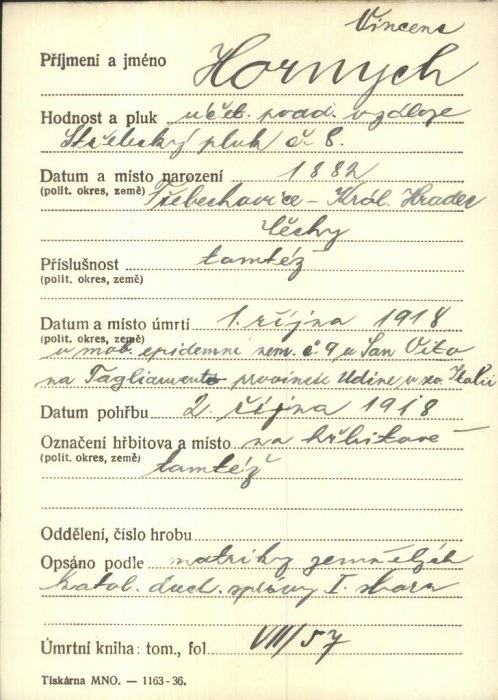 Vincenc
Příjmení a jméno Hornych
Hodnost a pluk účet. podd. v zdloze
Střelecký pluk č 8.
Datum a místo narození 1882
(polit. okres, země) Třebechovice - Král. Hradec
Čechy
Příslušnost tamtéž
(polit. okres, země)
Datum a místo úmrtí 1. října 1918
(polit. okres, země) v mob. epidemní nem. č 9 v San Vito
na Tagliamento provincie Udine v sv. Italii
Datum pohřbu 2. října 1918
Označení hřbitova a místo na hřbitově
(polit. okres, země) tamtéž
Oddělení, číslo hrobu
Opsáno podle matriky zemřelých
katol. duch. správy I. sboru
Úmrtní kniha: tom., fol. VIII/57
Tiskárna MNO. — 1163-36.